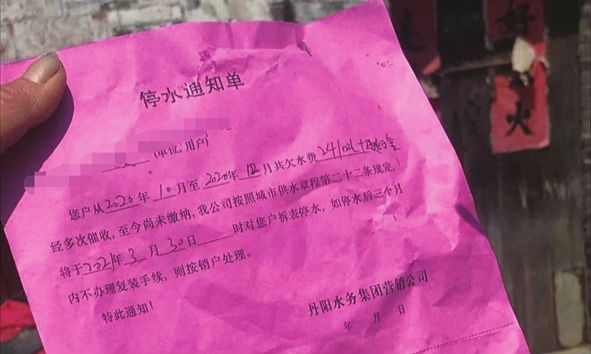 停水通知单
(单位,用户)
您户从2020年10月至2020年12月共欠水费241.04
经多次催收,至今尚未缴纳,我公司按照城市供水章程第二十二条规定,
将于2021年3月30日 时对您户拆表停水,如停水后三个月
内不办理复装手续,则按销户处理。
特此通知!
丹阳水务集团营销公司
年 月 日
好
火